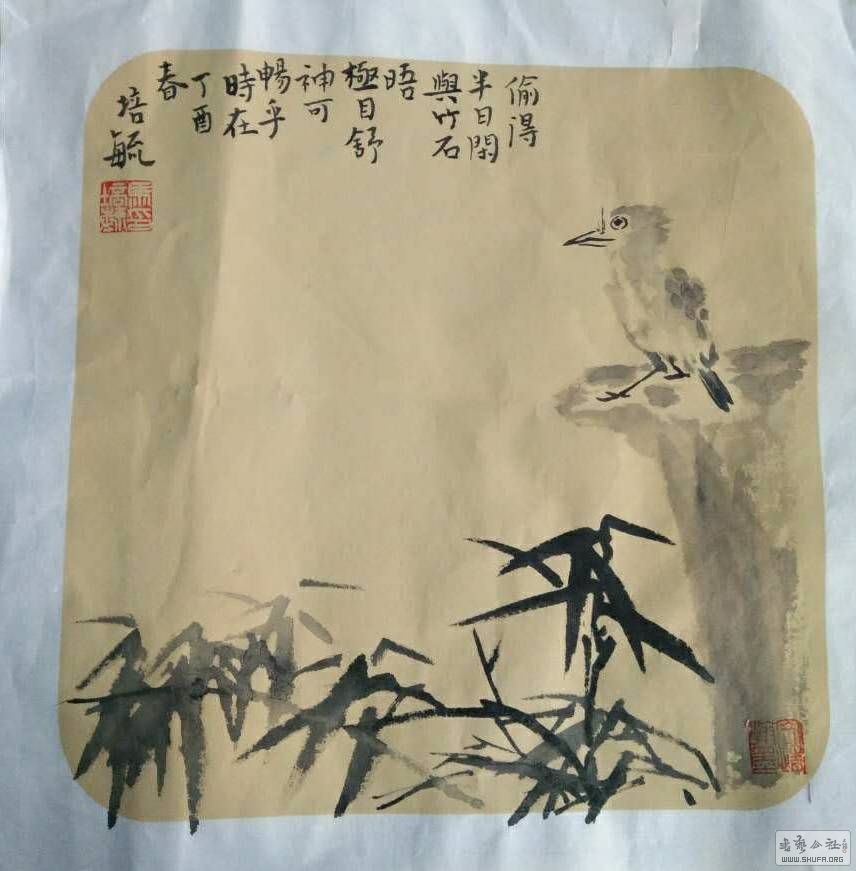 偷得
半日閑
與竹石
晤
極目舒
神可
暢乎
時在
丁酉
春
培毓
書艺公社
WWW.SHUFA.ORG